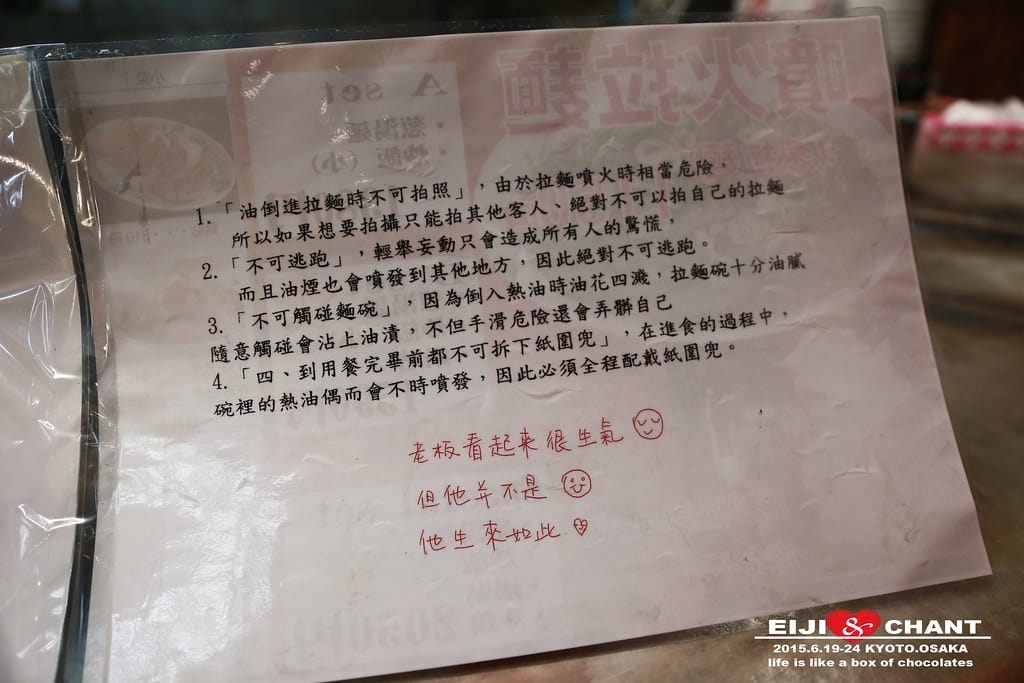 噴火拉麵
A set
・葱湯麺
・炒飯（小）
1.「油倒進拉麵時不可拍照」，由於拉麵噴火時相當危險，
所以如果想要拍攝只能拍其他客人、絕對不可以拍自己的拉麵
2.「不可逃跑」，輕舉妄動只會造成所有人的驚慌，
而且油煙也會噴發到其他地方，因此絕對不可逃跑。
3.「不可觸碰麵碗」，因為倒入熱油時油花四濺，拉麵碗十分油膩
隨意觸碰會沾上油漬，不但手滑危險還會弄髒自己
4.「四、到用餐完畢前都不可拆下紙圍兜」，在進食的過程中，
碗裡的熱油偶而會不時噴發，因此必須全程配戴紙圍兜。
老板看起來很生氣
但他并不是
他生來如此
EIJI & CHANT
2015.6.19-24 KYOTO.OSAKA
life is like a box of chocolates